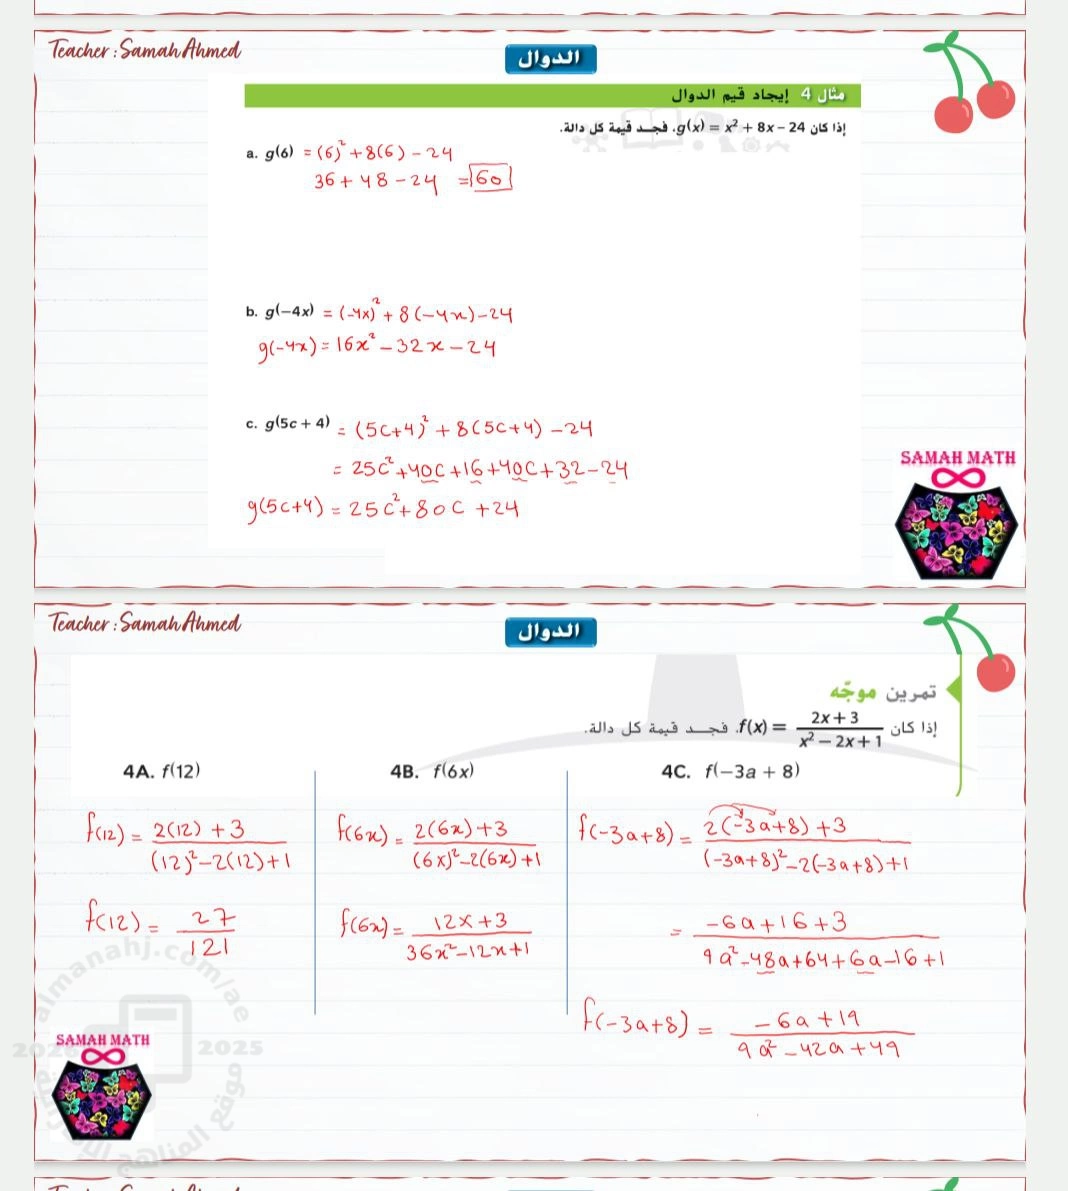 Teacher : Samah Ahmed
الدوال
مثال 4 إيجاد قيم الدوال
إذا كان g(x) = x² + 8x – 24، فجد قيمة كل دالة.
a. g(6) = (6)² + 8(6) - 24
36 + 48 - 24 = 60
b. g(−4x) = (-4x)² + 8(-4x) - 24
g(-4x) = 16x² - 32x - 24
c. g(5c + 4) = (5c+4)² + 8(5c+4) - 24
= 25c² + 40c + 16 + 40c + 32 - 24
g(5c+4) = 25c² + 80c + 24
SAMAH MATH
Teacher : Samah Ahmed
الدوال
تمرين موجّه
إذا كان f(x) = (2x + 3)/(x² − 2x + 1)، فجد قيمة كل دالة.
4A. f(12)
f(12) = (2(12) + 3)/((12)² - 2(12) + 1)
f(12) = 27/121
4B. f(6x)
f(6x) = (2(6x) + 3)/((6x)² - 2(6x) + 1)
f(6x) = (12x + 3)/(36x² - 12x + 1)
4C. f(−3a + 8)
f(-3a+8) = (2(-3a+8) + 3)/((-3a+8)² - 2(-3a+8) + 1)
= (-6a + 16 + 3)/(9a² - 48a + 64 + 6a - 16 + 1)
f(-3a+8) = (-6a + 19)/(9a² - 42a + 49)
almanahj.com/ae
2025
SAMAH MATH